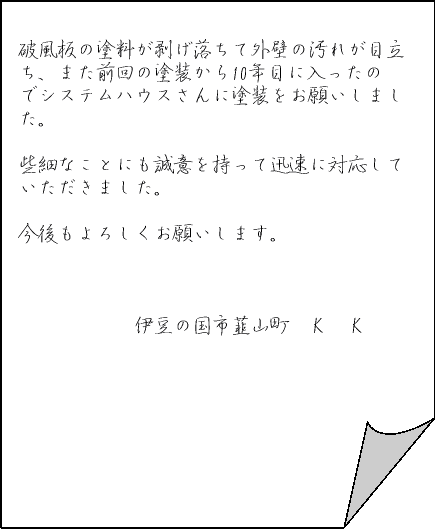 破風板の塗料が剥げ落ちて外壁の汚れが目立
ち、また前回の塗装から10年目に入ったの
でシステムハウスさんに塗装をお願いしまし
た。
些細なことにも誠意を持って迅速に対応して
いただきました。
今後もよろしくお願いします。
伊豆の国市韮山町 K K